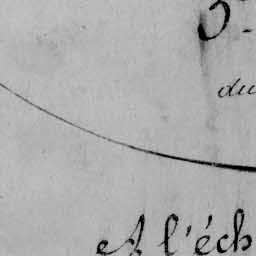 du
A l'éch